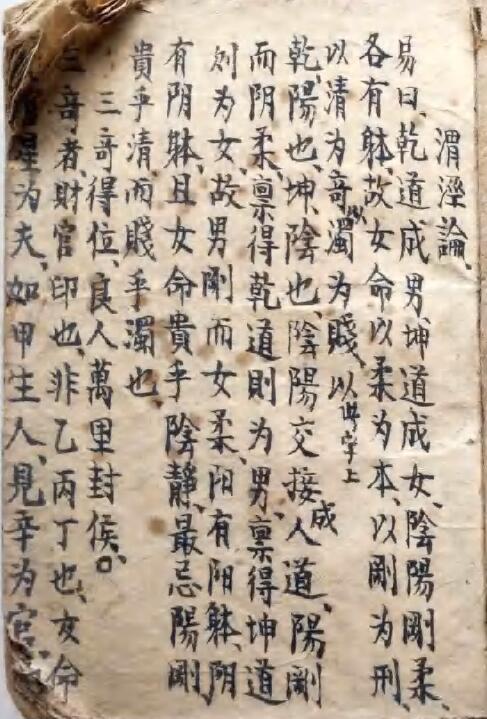 渭涇論、
易曰、乾道成男、坤道成女、陰陽剛柔、
各有躰、故女命以柔為本、以剛為刑、
以清為奇、以濁为賤、以此字上
乾、陽也、坤、陰也、陰陽交接成人道、陽剛
而阴柔、禀得乾道則为男、禀得坤道
则为女、故男剛而女柔、阳有阳躰、阴
有阴躰、且女命貴乎陰静、最忌陽剛、
貴乎清、而賤乎濁也、
三奇得位、良人萬里封侯。
三奇者、財官印也、非乙丙丁也、女命
星为夫、如甲生人、見辛为官、